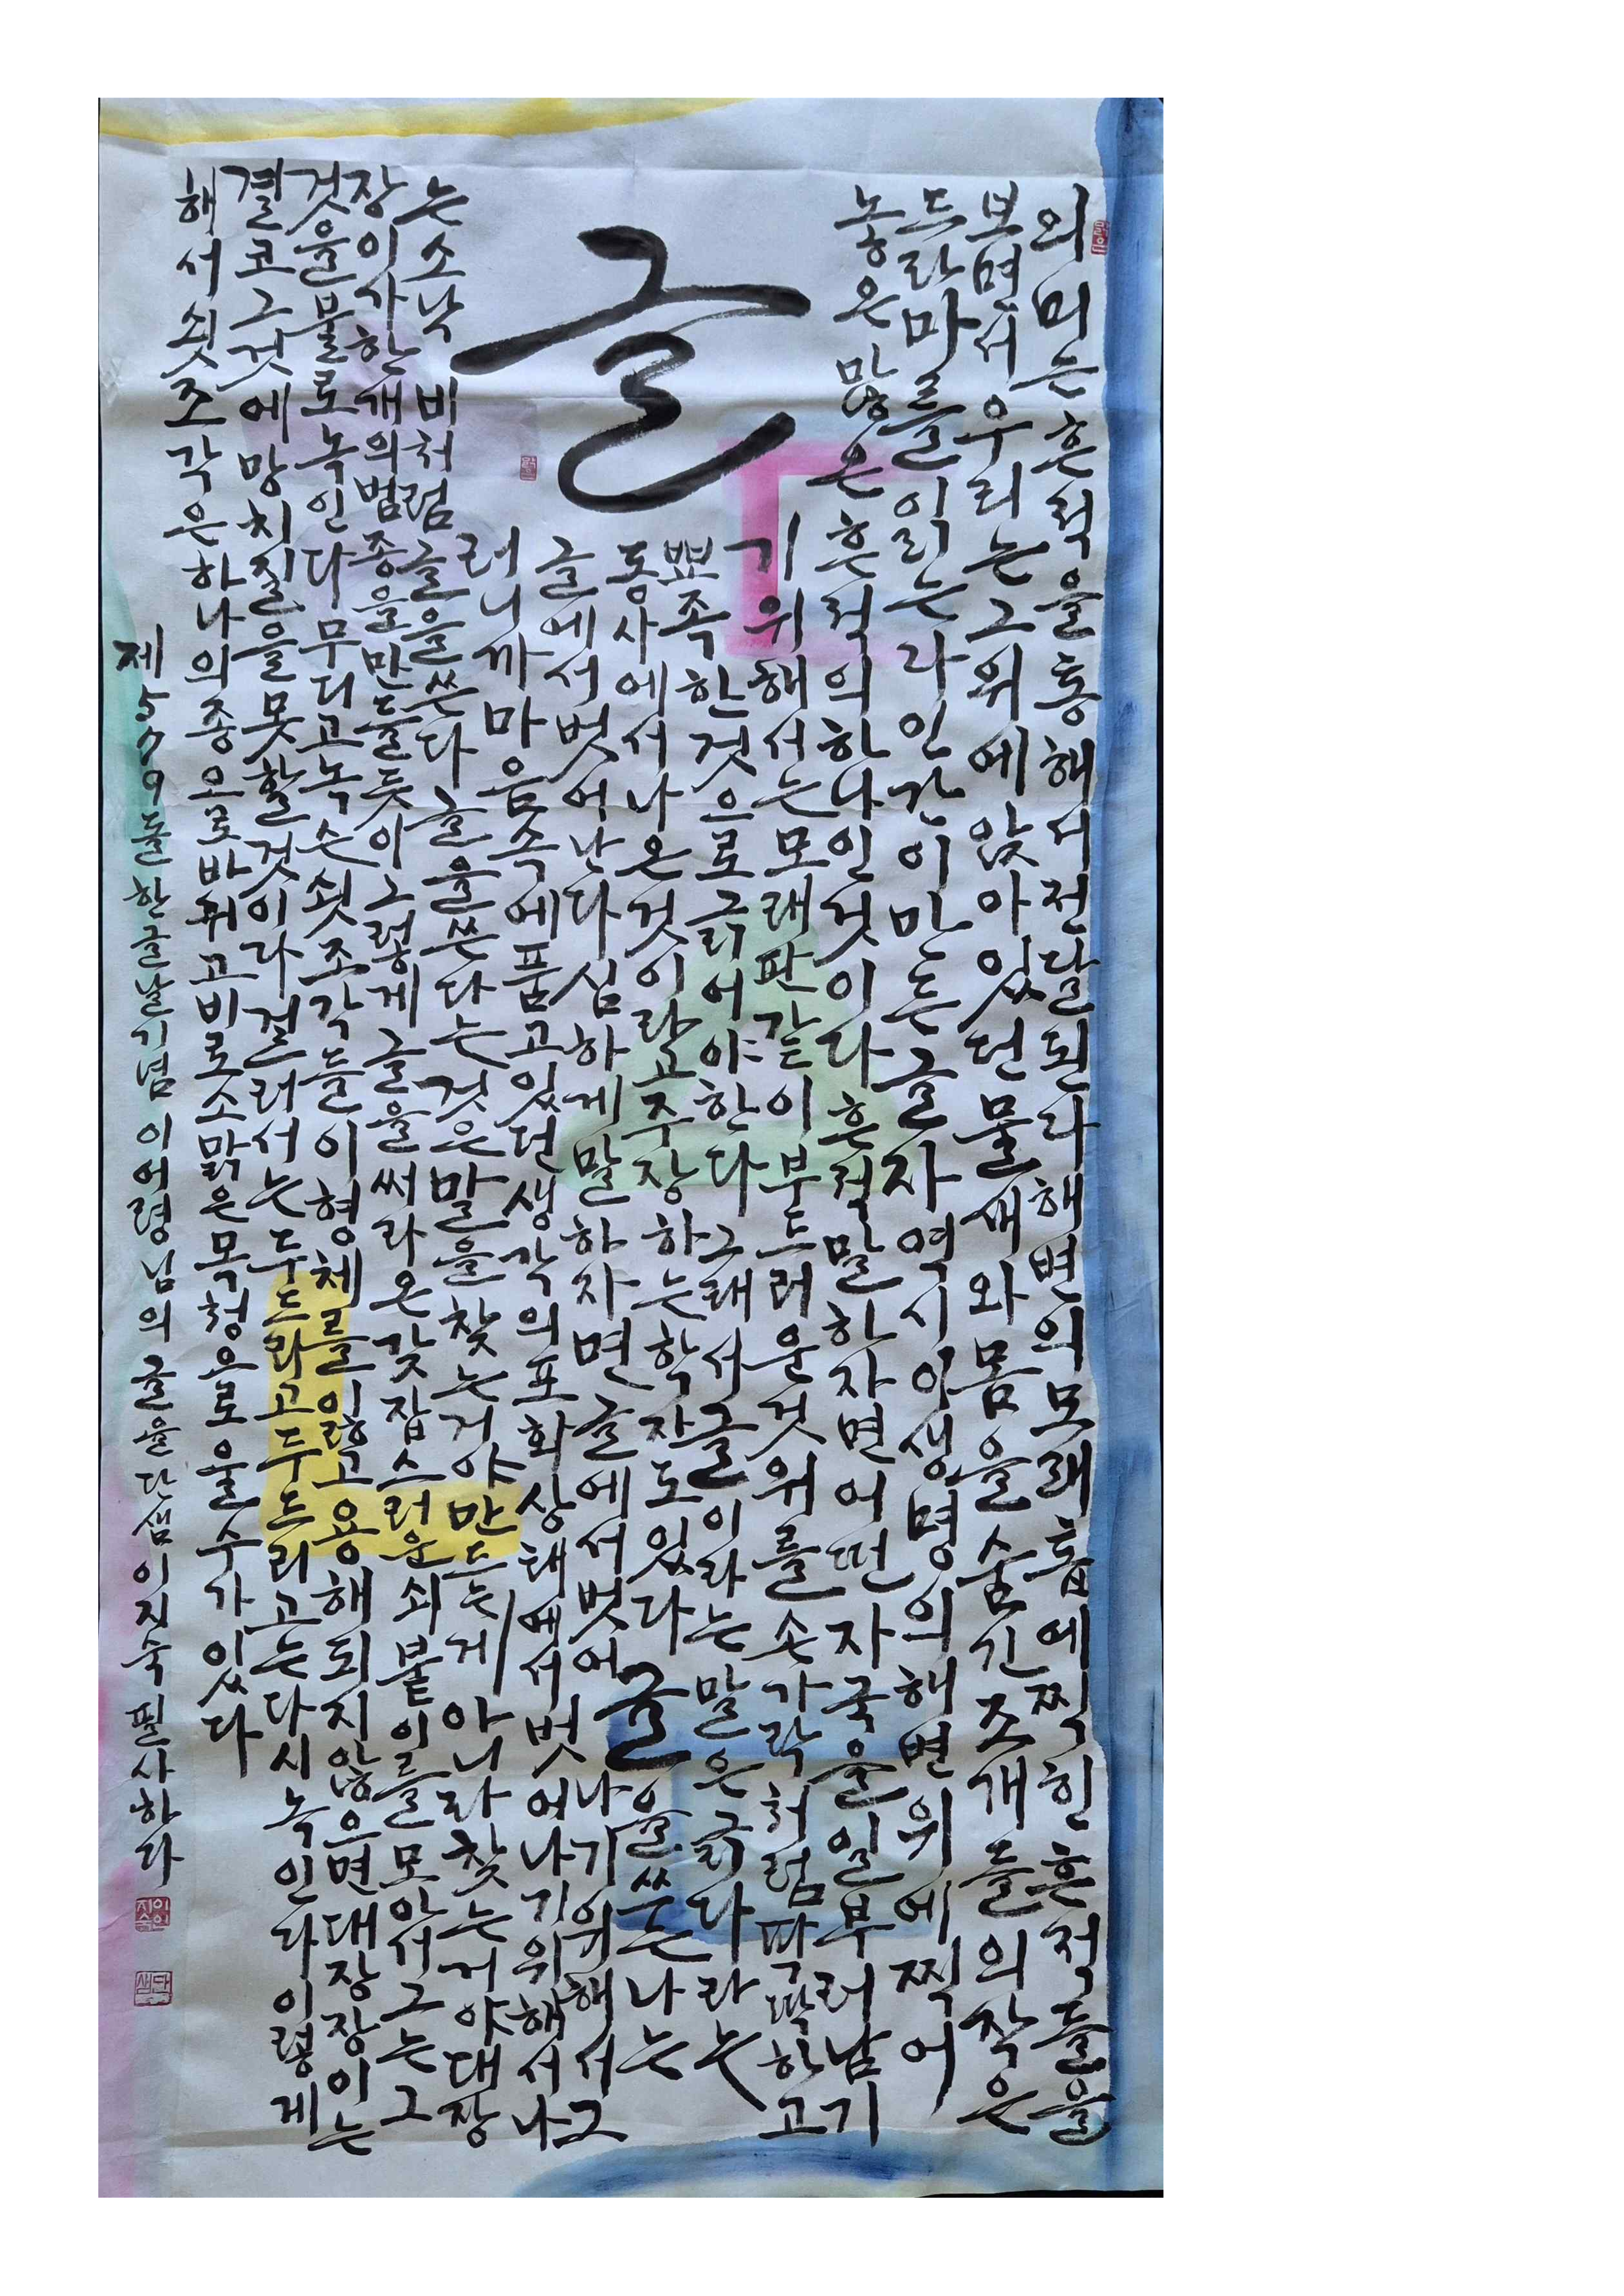 글
의미는 흔적을 통해서 전달된다 해변의 모래홉에 찍힌 흔적들을
보면서 우리는 그 위에 앉아 있던 물새와 몸을 숨긴 조개들의 작은
드라마를 읽는다 인간이 만든 글자 역시 이 생명의 해변 위에 찍어
놓은 많은 흔적의 하나인 것이다 흔적 말하자면 어떤 자국을 일부러 남기
기 위해서는 모래판 같이 부드러운 것 위를 손가락처럼 딱딱하고
뾰족한 것으로 긁어야 한다 그래서 글이라는 말은 긁다라는
동사에서 나온 것이라고 주장하는 학자도 있다 글을 쓰는 나는
글에서 벗어난다 심하게 말하자면 글에서 벗어나기 위해서 그
러니까 마음속에 품고 있던 생각의 포화상태에서 벗어나기 위해서 나
는 소낙비처럼 글을 쓴다 글을 쓴다는 것은 말을 찾는 거야 만드는 게 아니라 찾는 거야 대장
장이가 한 개의 범종을 만들듯이 그렇게 글을 써라 온갖 잡스러운 쇠붙이를 모아서 그는 그
것을 불로 녹인다 무디고 녹슨 쇳조각들이 형체를 잃고 용해되지 않으면 대장장이는
결코 그것에 망치질을 못할 것이라 걸러서는 두드리고 두드리고는 다시 녹인다 이렇게
해서 쇳조각은 하나의 종으로 바뀌고 비로소 맑은 목청으로 울 수가 있다
제579돌 한글날 기념 이어령님의 글을 단샘 이지숙 필사하다
단샘